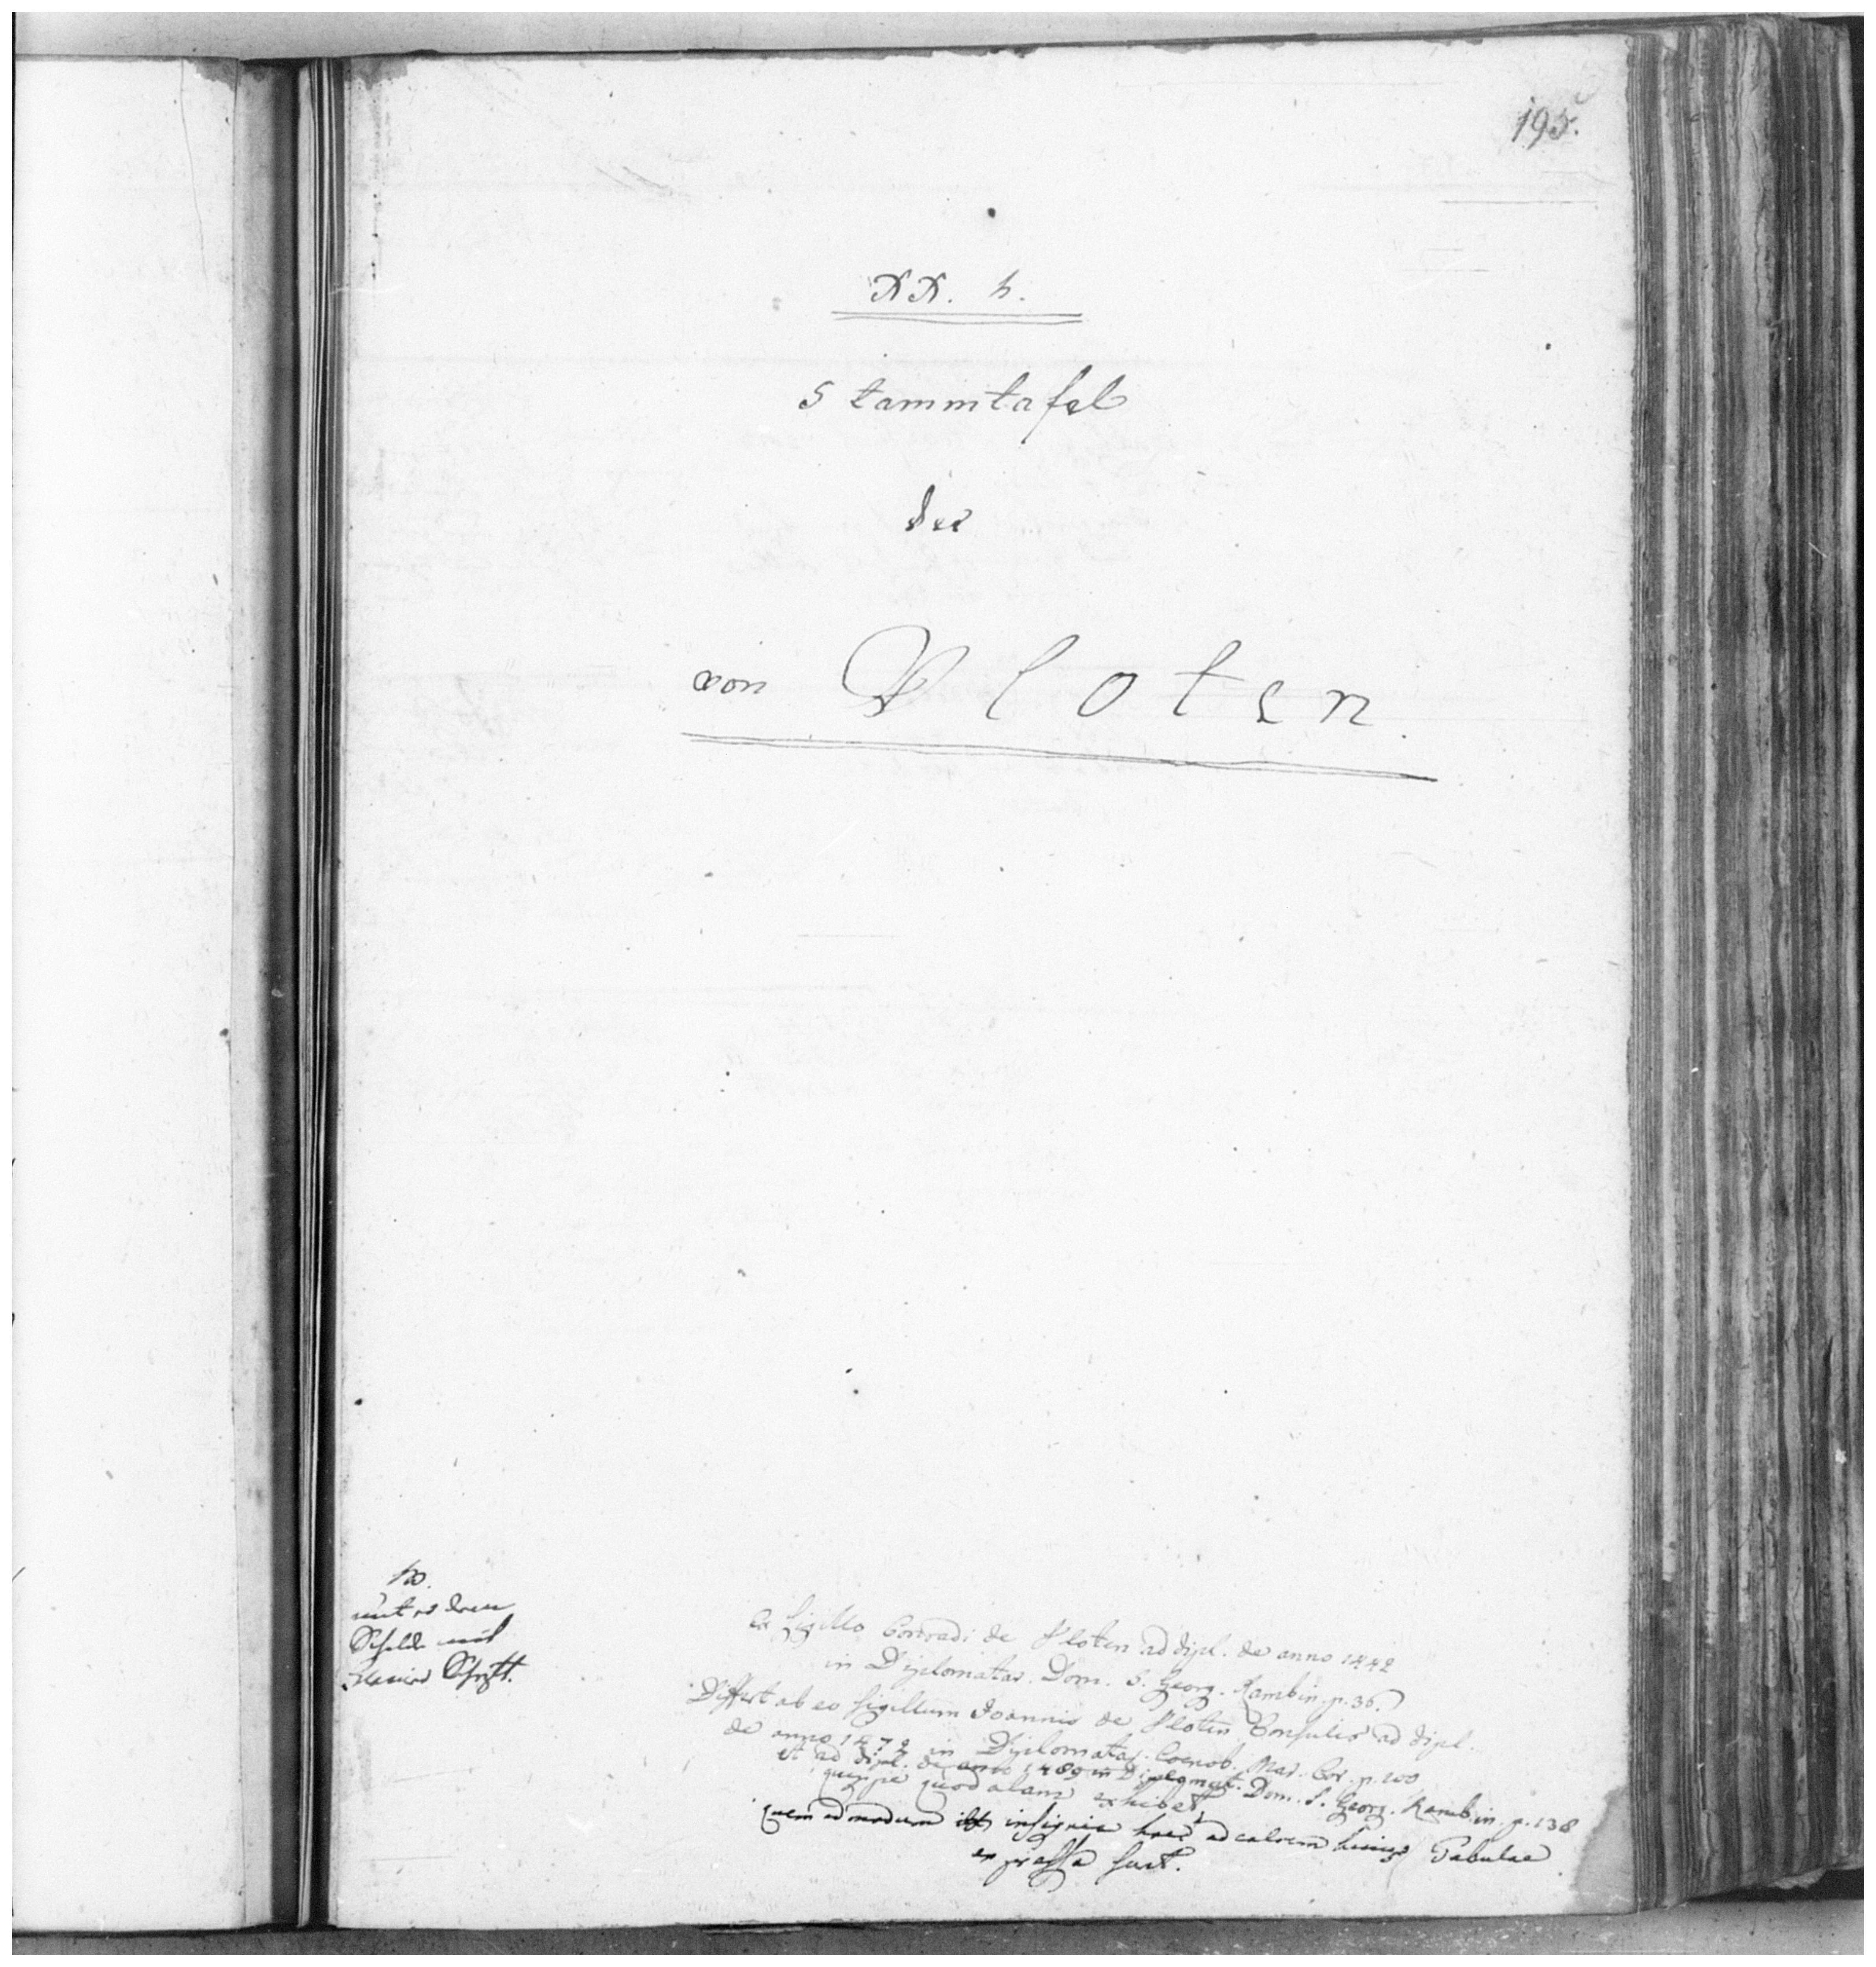 195.
XX. h.
Stammtafel
der
von Ploten.
NB.
unter dem
Schilde mit
kleiner Schrift.
Ex Sigillo Conradi de Ploten ad dipl. de anno 1442
in Diplomatar. Dom. S. Georg. Rambin. p. 36.
Differt ab eo Sigillum Joannis de Ploten Consulis ad dipl.
de anno 1472 in Diplomatar. Coenob. Mar. Cor. p. 200
et ad dipl. de anno 1489 in Diplomat. Dom. S. Georg. Rambin. p. 138
quippe quod alam exhibet
quemadmodum insignia haec ad calcem hujus Tabulae
expressa sunt.